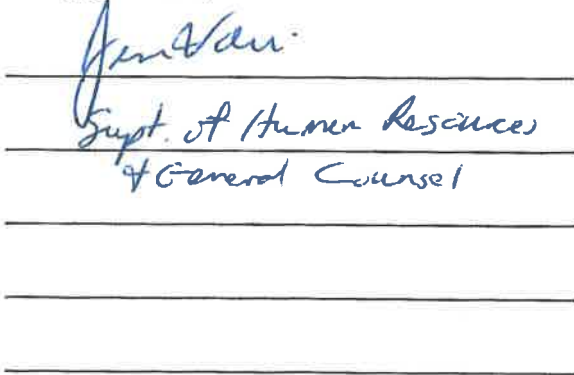 Supt. of Human Resources
& General Counsel